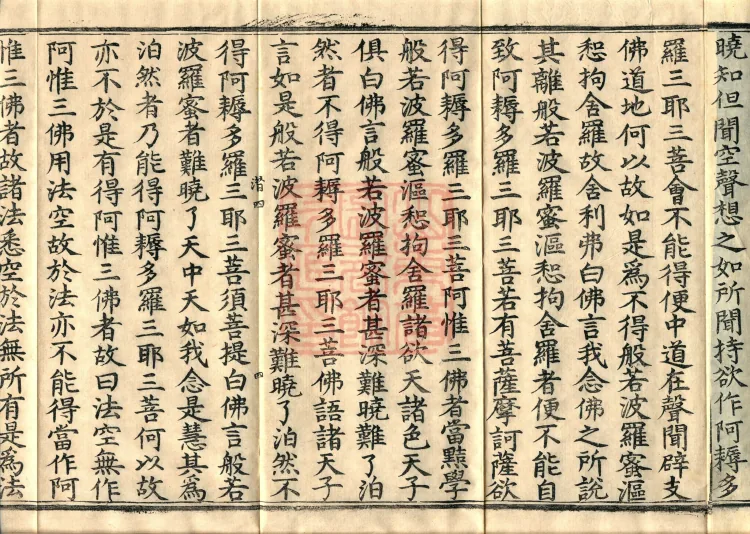 曉知但聞空聲想之如所聞持欲作阿耨多
羅三耶三菩會不能得便中道在聲聞辟支
佛道地何以故如是爲不得般若波羅蜜漚
惒拘舍羅故舍利弗白佛言我念佛之所說
其離般若波羅蜜漚惒拘舍羅者便不能自
致阿耨多羅三耶三菩若有菩薩摩訶薩欲
得阿耨多羅三耶三菩阿惟三佛者當黠學
般若波羅蜜漚惒拘舍羅諸欲天諸色天子
俱白佛言般若波羅蜜者甚深難曉難了泊
然者不得阿耨多羅三耶三菩佛語諸天子
言如是般若波羅蜜者甚深難曉了泊然不
四
得阿耨多羅三耶三菩須菩提白佛言般若
波羅蜜者難曉了天中天如我念是慧其爲
泊然者乃能得阿耨多羅三耶三菩何以故
亦不於是有得阿惟三佛者故曰法空無作
阿惟三佛用法空故於法亦不能得當作阿
惟三佛者故諸法悉空於法無所有是爲法